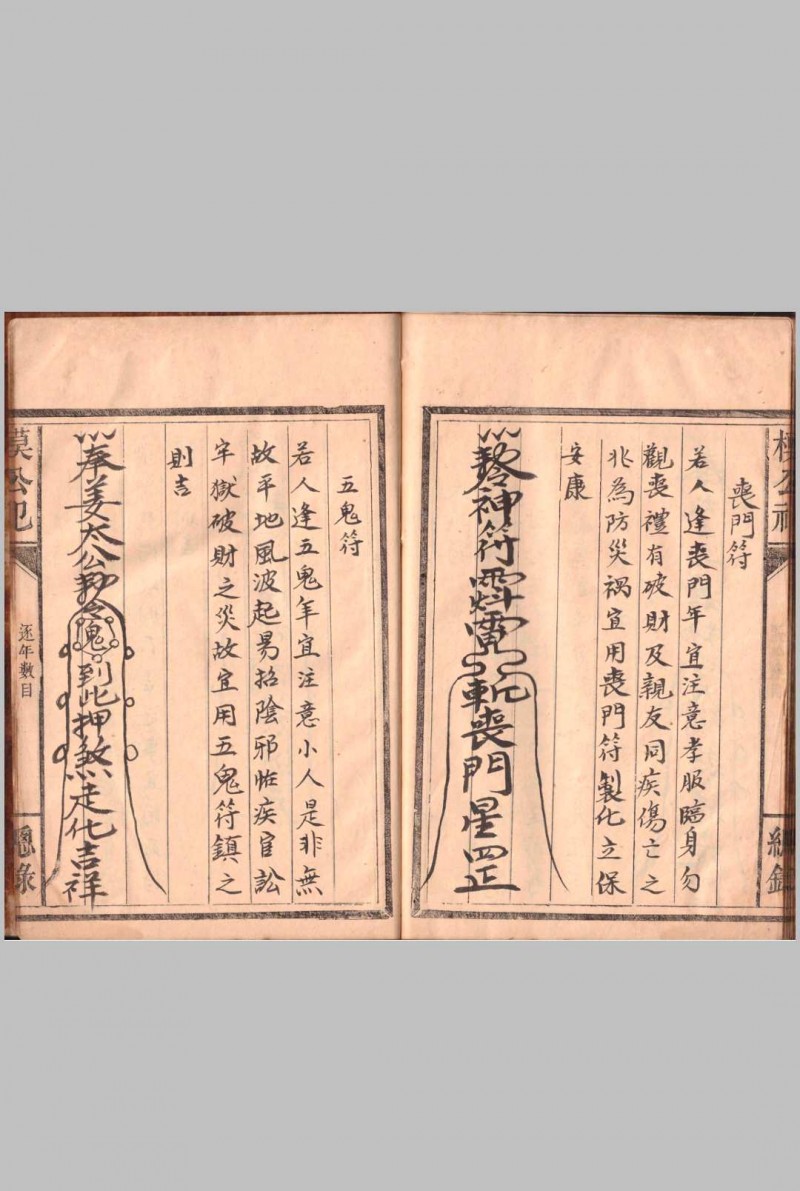 喪門符
若人逢喪門年宜注意孝服臨身勿
觀喪禮有破財及親友同疾傷亡之
兆為防災禍宜用喪門符製化立保
安康
神符
斬喪門星罡
五鬼符
若人逢五鬼年宜注意小人是非無
故平地風波起易招陰邪怪疾官訟
牢獄破財之災故宜用五鬼符鎮之
則吉
奉姜太公勅令鬼到此押煞走化吉祥
逐年数目
總錄